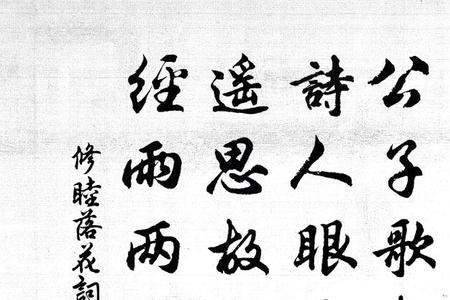 公子歌
詩人眼
遥思故
經雨两
修睦落花詞